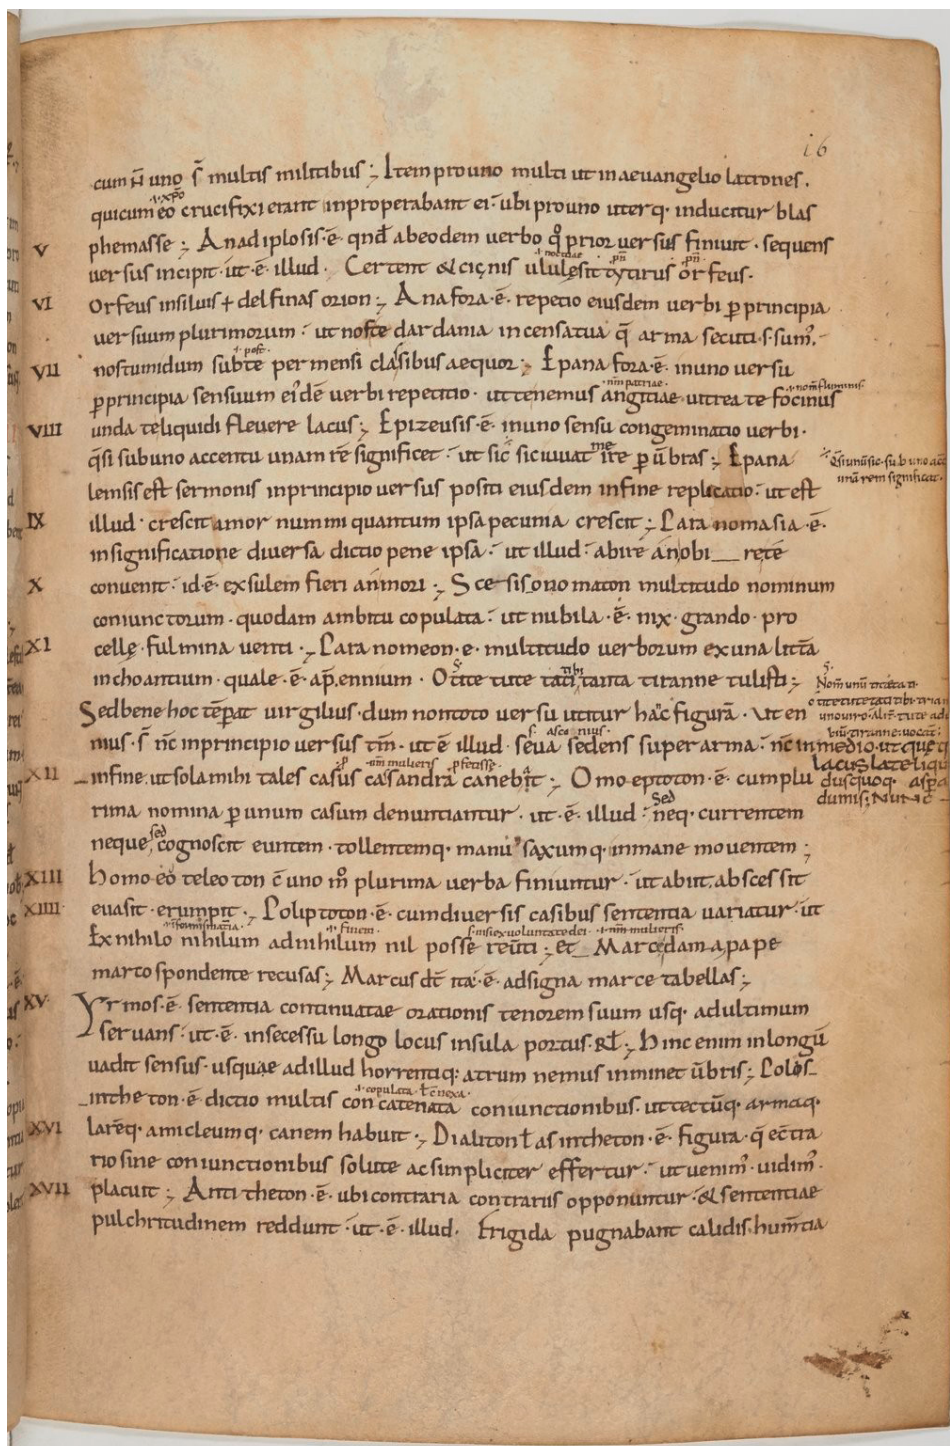 16
cum n̄ uno s̄ multis militibus ; Item pro uno multi ut in aevangelio latrones .
.i. xp̄o
qui cum eo crucifixi erant inproperabant ei · ubi pro uno uterq · inducitur blas
V phemasse ; Anadiplosis · ē · qn̄d ab eodem verbo q̊ prior versus finiut · sequens
versus incipit · ut · ē · illud · Certent & cicnis ululę sit tytirus orfeus ·
VI Orfeus in siluis + delfinas orion ; Anafora · ē · repetio eiusdem verbi p principia
versuum plurimorum · ut nocte dardania incensa tua q̄ arma secuti · s · sum̄ ·
.i. post
VII nos tumidum subte permensi classibus aequor ; Epanafora · ē · in uno versu
nm̄ patriae · .i. nom̄ fluminis
p principia sensuum ei'dē verbi repetitio · ut te nemus angitiae vitrea te focinus
VIII unda te liquidi flevere lacus ; Epizeusis · ē · in uno sensu congeminatio verbi ·
q̄si sub uno accentu unam rē significet · ut sic sic iuvat ire p ūbras ; Epana
Qsi unū sic · sub uno acc
unā rem significat ·
lemsis est sermonis in principio versus positi eiusdem in fine replicatio · ut est
IX illud · crescit amor nummi quantum ipsa pecunia crescit ; Paranomasia · ē ·
in significatione diversa dictio pene ipsa · ut illud · abire an obi__retē
X convenit · id · ē · exsulem fieri an mori ; Scesisonomaton multitudo nominum
coniunctorum · quodam ambitu copulata · ut nubila · ē · nix · grando · pro
XI cellę · fulmina venti ; Paranomeon · e · multitudo verborum ex una littā
inchoantium · quale · ē · ap̄ ennium · O tite tute tati tanta tiranne tulisti ;
Sed bene hoc tēpat virgilius · dum non toto versu utitur hac figurā · Ut en
nius · s̄ nc̄ in principio versus tm̄ · ut ē illud · seva sedens super arma · nc̄ in medio · ut que q
lacus late liqu
XII in fine · ut sola mihi tales casus casandra canebat ; Omoeptoton · ē · cum plu
dusquoq · aspa
dumis · Nunc
rima nomina p unum casum denuntiantur · ut · ē · illud · neq · currentem
sed
neque cognoscit euntem · tollentemq · manu saxumq · inmane moventem ;
XIII Homoeo teleoton c̄ uno m̊ plurima verba finiuntur · ut abiit, abscessit
XIIII evasit · erumpit ; Poliptoton · ē · cum diversis casibus sententia variatur · ut
Ex nihilo nihilum ad nihilum nil posse reūti ; et Marce dama papae
marco spondente recusas ; Marcus dc̄ ita · ē · adsigna marce tabellas ;
XV Yrmos · ē · sententia continuatae orationis tenorem suum usq · ad ultimum
servans · ut · ē · in secessu longo locus insula portus · Rł ; Hinc enim in longū
vadit sensus · usquae ad illud horrentiq · atrum nemus inminet ūbris ; Polos
intheton · ē dictio multis concatenata coniunctionibus · ut tectūq · armaq ·
XVI larēq · amicleumq · canem habuit ; Dialiton ł asintheton · ē · figura · q̄ ec̄tra
rio sine coniunctionibus solute ac simpliciter effertur · ut venim̄ · vidim̄ ·
XVII placuit ; Antitheton · ē · ubi contraria contrariis opponuntur · & sententiae
pulchritudinem reddunt · ut · ē · illud · Frigida pugnabant calidis · humn̄tia